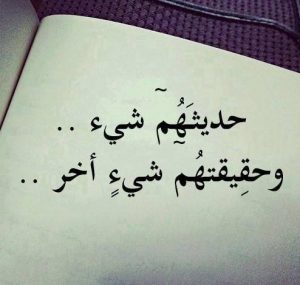 حديثَهُم~ شيء ..
وحقِيقتهُم~ شيءٍ أخر ..